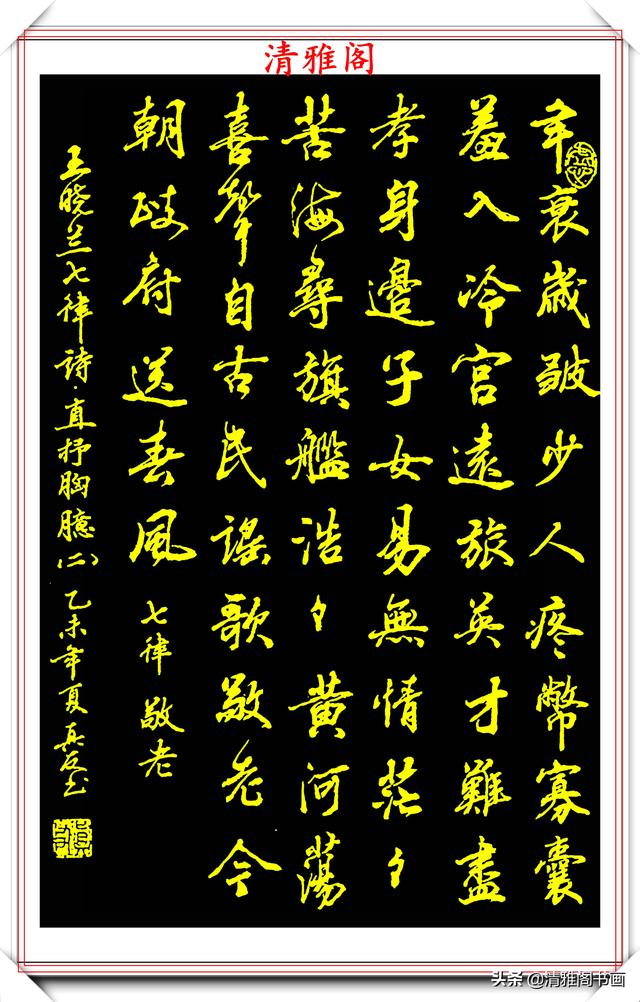 清雅阁
年衰歲皺少人疼幣寡囊
羞入冷宮遠旅英才難盡
孝身邊子女易無情茫〻
苦海尋旗艦浩〻黃河蕩
喜聲自古民謡歌敬老今
朝政府送春風 七律 敬老
王晓兰七律詩·直抒胸臆(二) 乙未年夏真
头条 @清雅阁书画